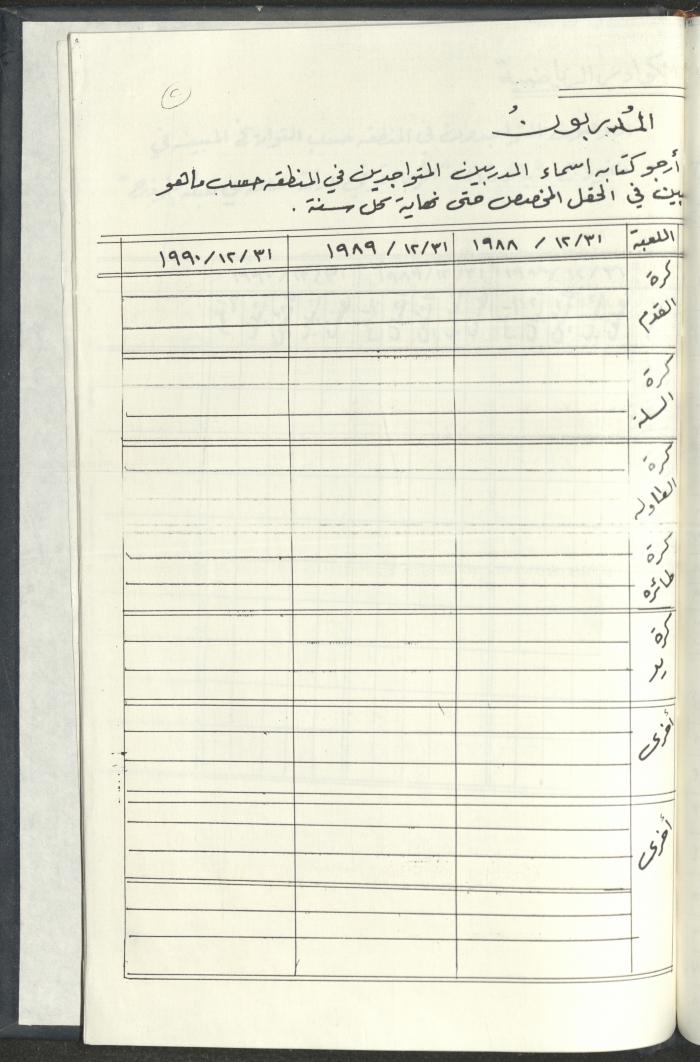 المدربون
أرجو كتابه اسماء المدربين المتواجدين في المنطقه حسب ماهو
مبين في الحقل المخصص حتى نهاية كل سنة .
اللعبة ٣١/١٢/ ١٩٨٨ ٣١/١٢/ ١٩٨٩ ٣١/١٢/ ١٩٩٠
كرة
القدم
كرة
السلة
كرة
الطاوله
كرة
طائره
كرة
يد
أخرى
أخرى